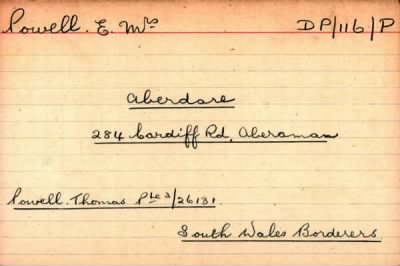 Powell. E. Mrs DP/116/P
Aberdare
284 Cardiff Rd, Aberaman
Powell. Thomas Pte 3/26131.
South Wales Borderers